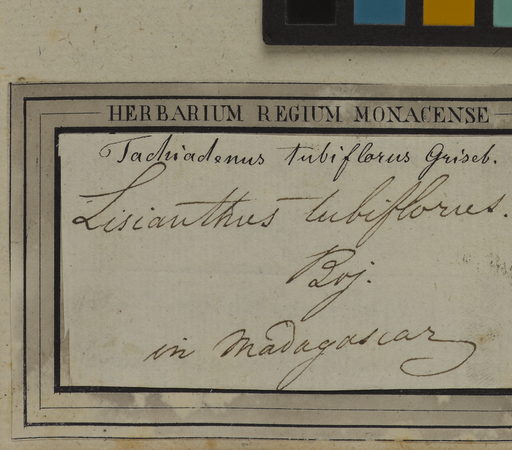 HERBARIUM REGIUM MONACENSE
Tachiadenus tubiflorus Griseb.
Lisianthus tubiflorus.
Boj.
in Madagascar